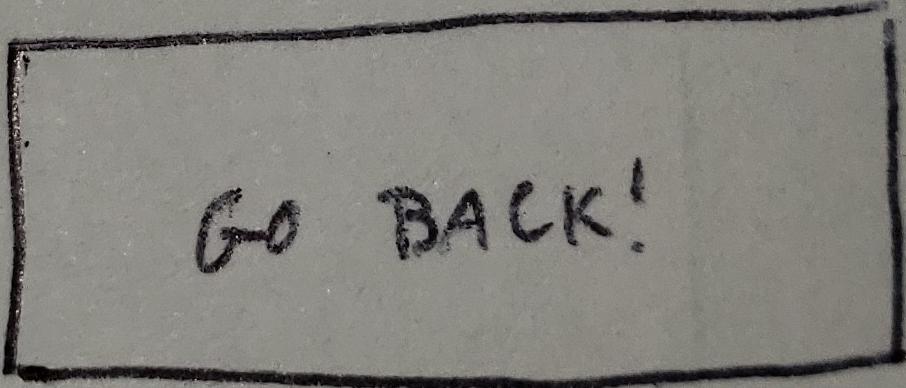 GO BACK!